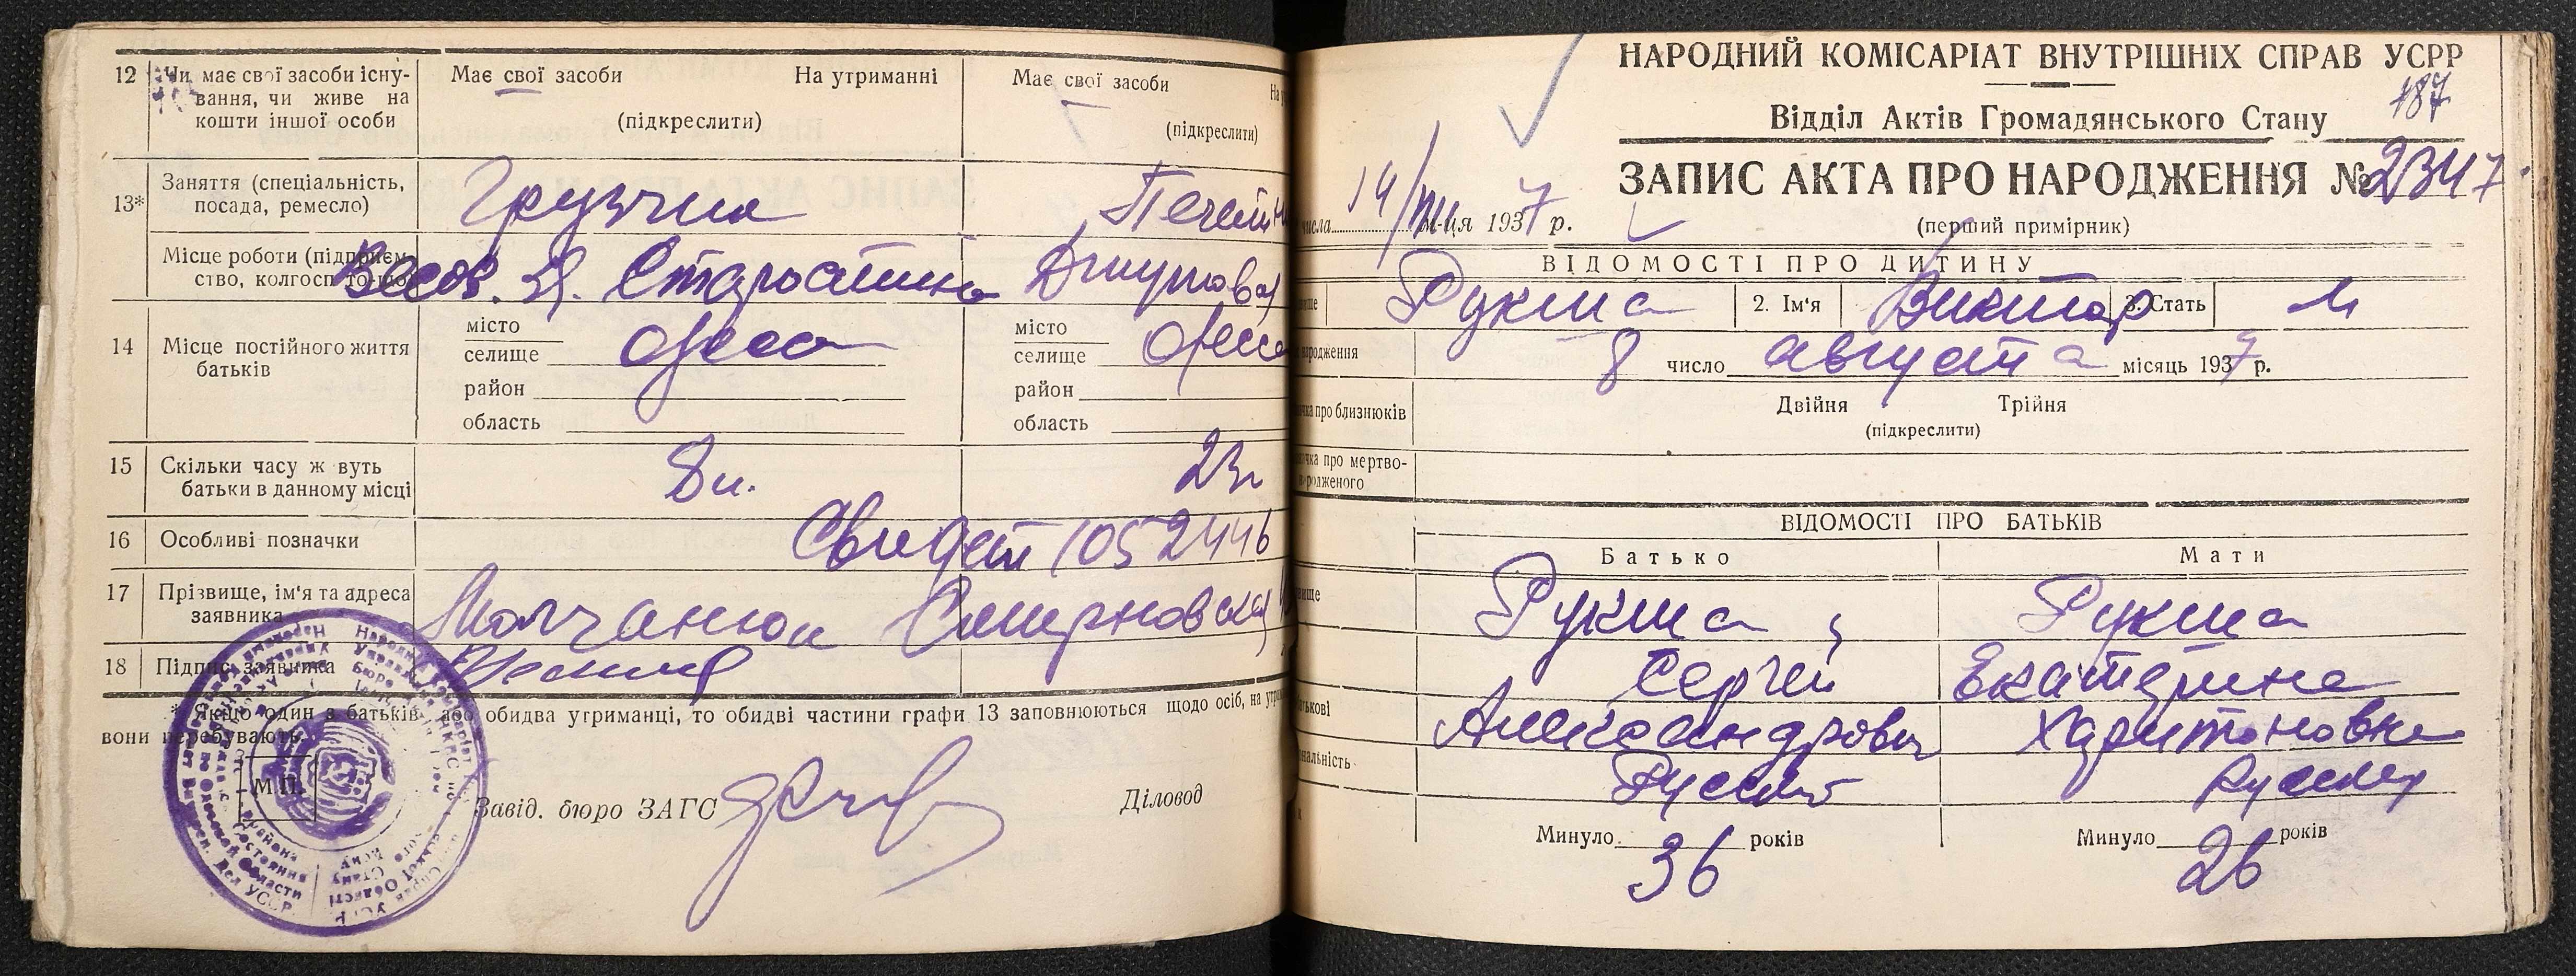 12
Чи має свої засоби існу-
вання, чи живе на
кошти іншої особи
Має свої засоби
На утриманні
(підкреслити)
Має свої засоби
На
(підкреслити)
13*
Заняття (спеціальність,
посада, ремесло)
Грузчик
Місце роботи (підприєм-
ство, колгосп то-що)
14
Місце постійного життя
батьків
місто
селище
Одесса
район
область
місто
селище
Одесса
район
область
15
Скільки часу ж вуть
батьки в данному місці
8 л.
23
16
Особливі позначки
Свидет 1052446
17
Прізвище, ім'я та адреса
заявника
Молчанюк
18
Підпис заявника
* Якщо один з батьків або обидва утриманці, то обидві частини графи 13 заповнюються щодо осіб, на
вони перебувають.
М.П.
Завід. бюро ЗАГС
Діловод
НАРОДНИЙ КОМІСАРІАТ ВНУТРІШНІХ СПРАВ УСРР
187
Відділ Актів Громадянського Стану
ЗАПИС АКТА ПРО НАРОДЖЕННЯ № 2347
(перший примірник)
числа 14/VIII м-ця 1937 р.
ВІДОМОСТІ ПРО ДИТИНУ
Рукша
2. Ім'я
Виктор
3. Стать
М
народження
8 число августа місяць 1937 р.
про близнюків
Двійня
Трійня
(підкреслити)
про мертво-
родженого
ВІДОМОСТІ ПРО БАТЬКІВ
Батько
Мати
Рукша
Рукша
Сергей
Екатерина
Александрович
Харитоновна
Русский
Русская
Минуло 36 років
Минуло 26 років